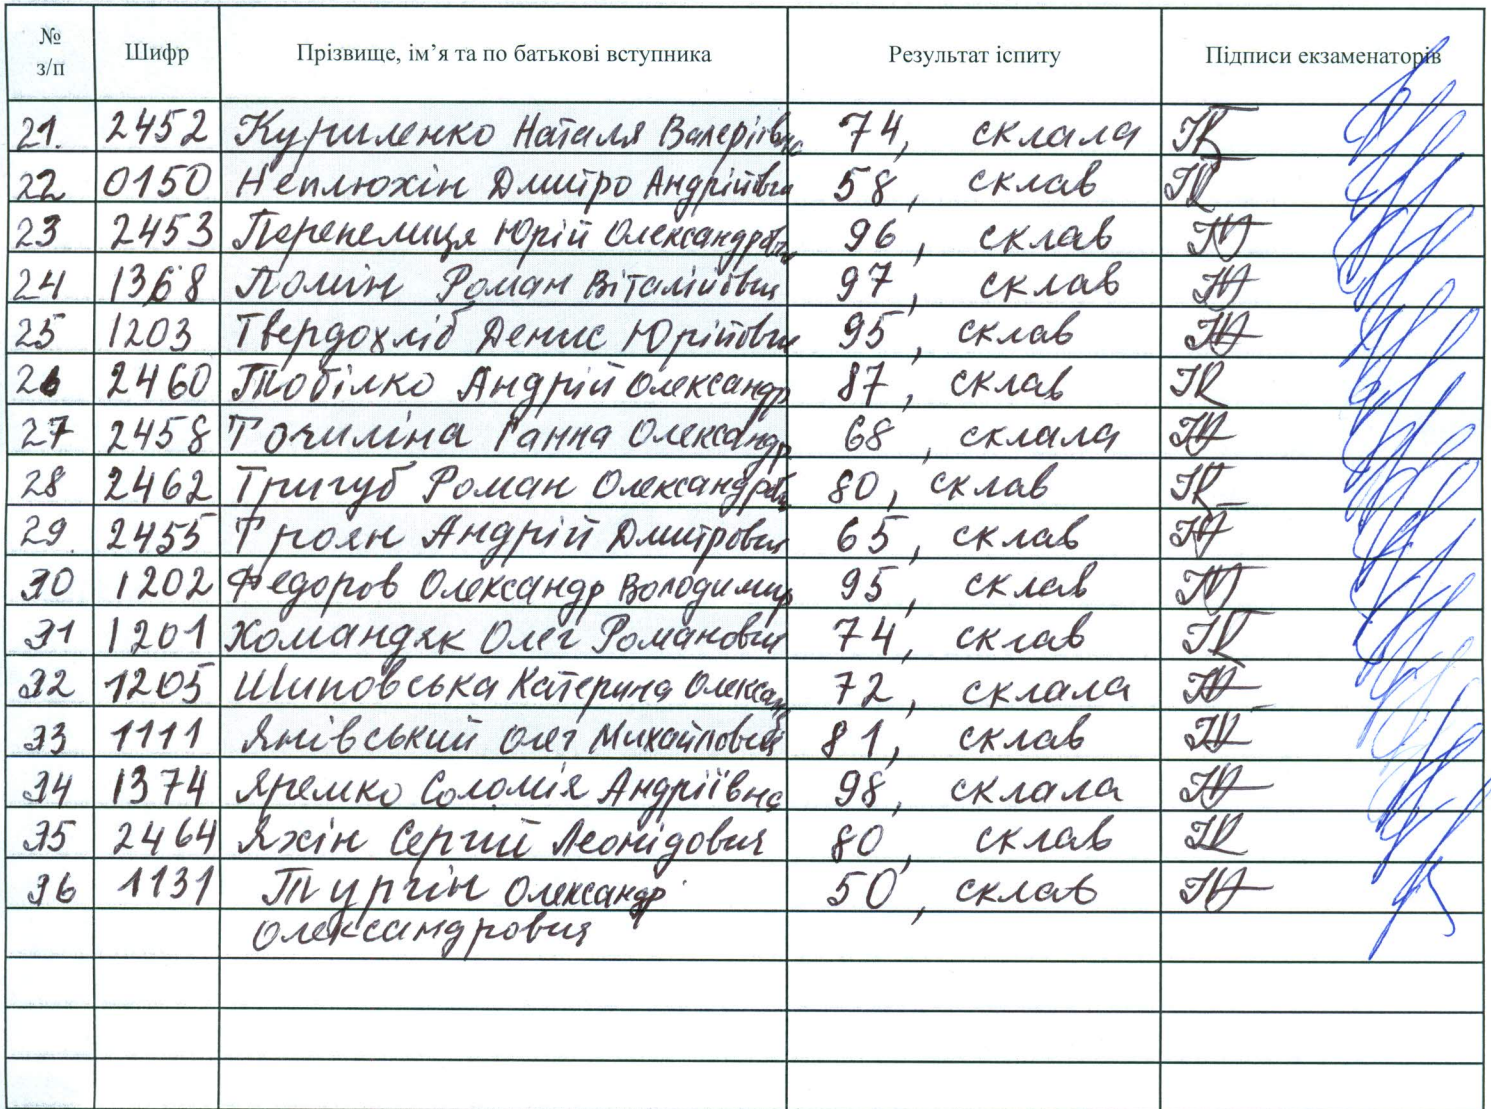 № з/п Шифр Прізвище, ім’я та по батькові вступника Результат іспиту Підписи екзаменаторів
21. 2452 Куриленко Наталя Валеріївна 74, склала
22 0150 Неплюхін Дмитро Андрійович 58, склав
23 2453 Перепелиця Юрій Олександрович 96, склав
24 1368 Помін Роман Віталійович 97, склав
25 1203 Твердохліб Денис Юрійович 95, склав
26 2460 Тобілко Андрій Олександр 87, склав
27 2458 Точиліна Ганна Олександр 68, склала
28 2462 Тригуб Роман Олександрович 80, склав
29. 2455 Троян Андрій Дмитрович 65, склав
30 1202 Федоров Олександр Володимир 95, склав
31 1201 Хомандяк Олег Романович 74, склав
32 1205 Шиповська Катерина Олександ 72, склала
33 1111 Янівський Олег Михайлович 81, склав
34 1374 Яремко Соломія Андріївна 98, склала
35 2464 Яхін Сергій Леонідович 80, склав
36 1131 Тургін Олександр 50, склав
Олександрович